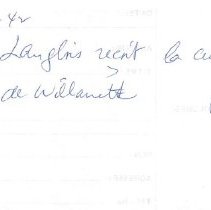 42
Langlois reçoit la
de Willamette